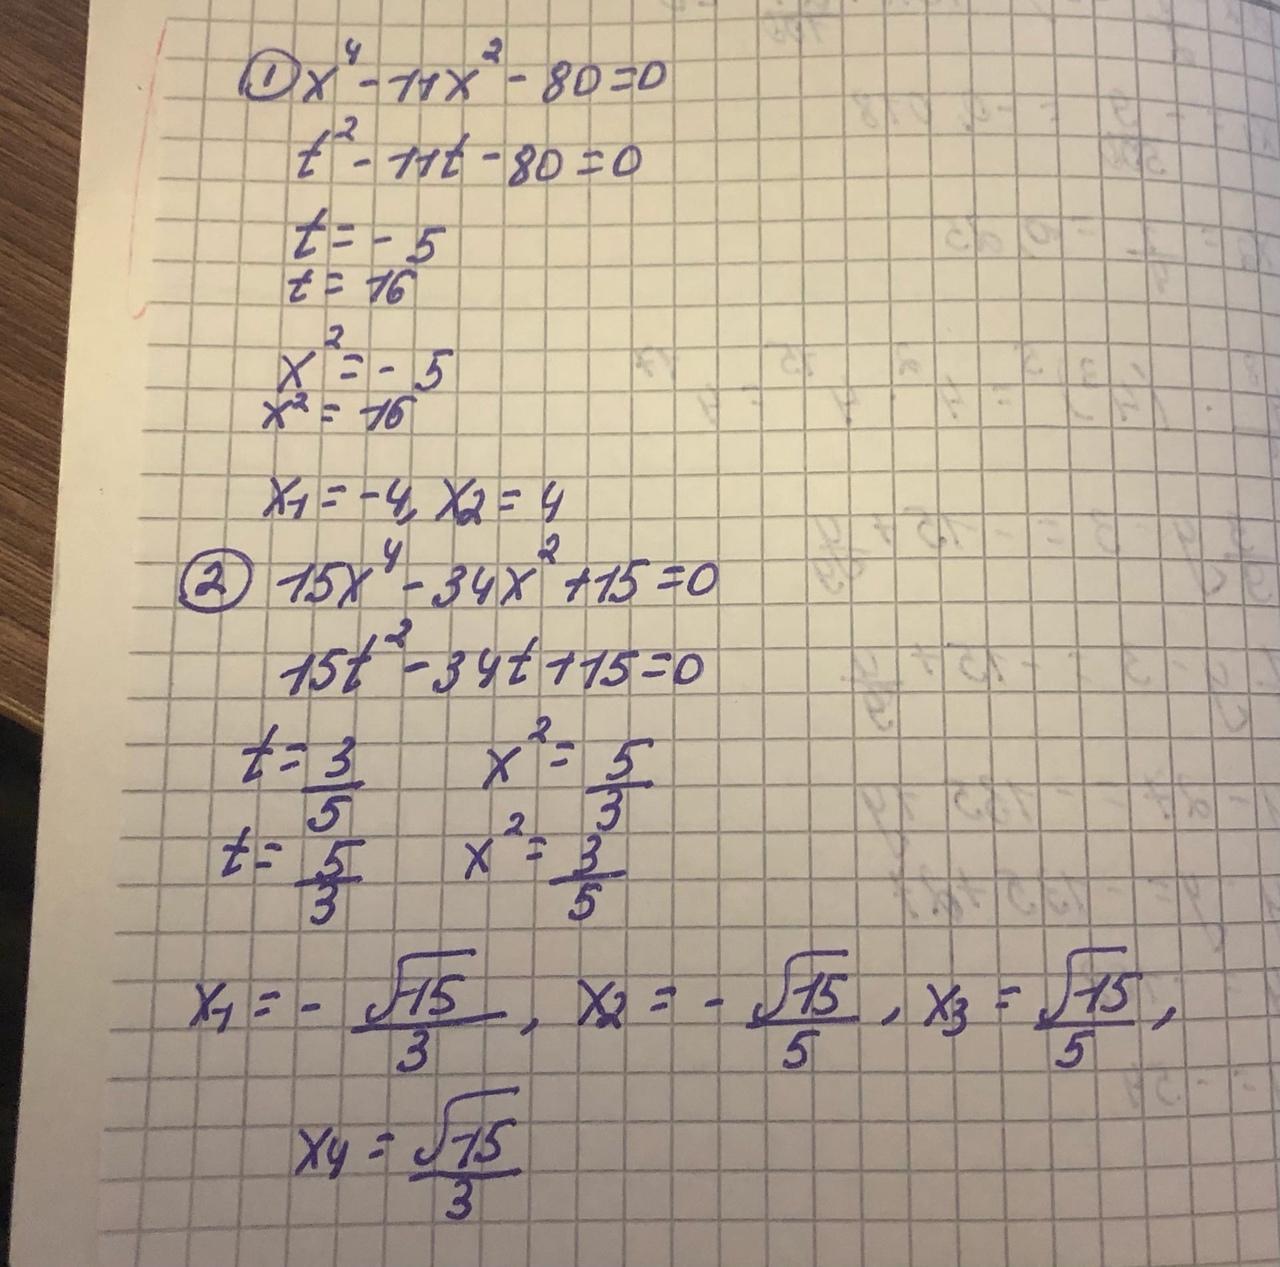 ① x⁴ - 11x² - 80 = 0
t² - 11t - 80 = 0
t = - 5
t = 16
x² = - 5
x² = 16
x₁ = -4, x₂ = 4
② 15x⁴ - 34x² + 15 = 0
15t² - 34t + 15 = 0
t = 3/5 x² = 5/3
t = 5/3 x² = 3/5
x₁ = - √15/3, x₂ = - √15/5, x₃ = √15/5,
x₄ = √15/3